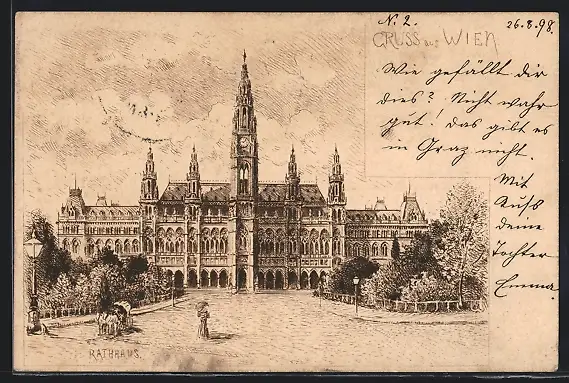 N. 2.
26.8.98.
GRUSS aus WIEN
Wie gefällt dir
dies? Nicht wahr
gut! Das gibt es
in Graz nicht.
Mit
Kuss
deine
Tochter
Emma.
RATHHAUS.